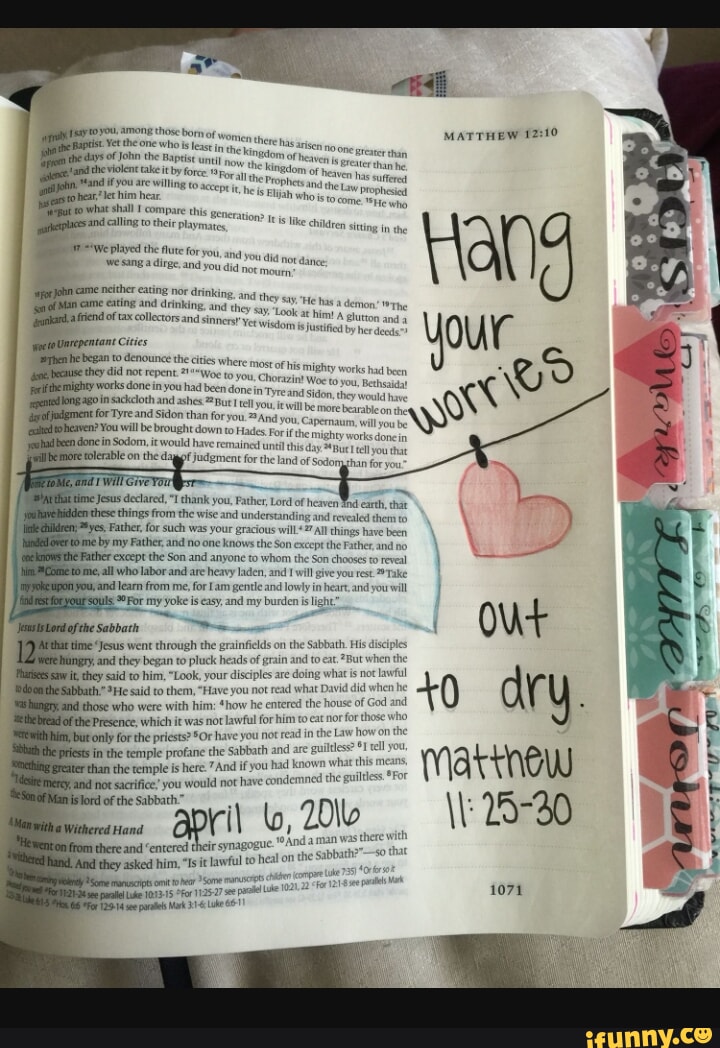 MATTHEW 12:10
"Truly, I say to you, among those born of women there has arisen no one greater than
John the Baptist. Yet the one who is least in the kingdom of heaven is greater than he.
From the days of John the Baptist until now the kingdom of heaven has suffered
violence, and the violent take it by force. 13 For all the Prophets and the Law prophesied
until John, 14 and if you are willing to accept it, he is Elijah who is to come. 15 He who
has ears to hear, let him hear.
16 "But to what shall I compare this generation? It is like children sitting in the
marketplaces and calling to their playmates,
17 "'We played the flute for you, and you did not dance;
we sang a dirge, and you did not mourn.'
18 For John came neither eating nor drinking, and they say, 'He has a demon.' 19 The
Son of Man came eating and drinking, and they say, 'Look at him! A glutton and a
drunkard, a friend of tax collectors and sinners!' Yet wisdom is justified by her deeds."
Woe to Unrepentant Cities
20 Then he began to denounce the cities where most of his mighty works had been
done, because they did not repent. 21 "Woe to you, Chorazin! Woe to you, Bethsaida!
For if the mighty works done in you had been done in Tyre and Sidon, they would have
repented long ago in sackcloth and ashes. 22 But I tell you, it will be more bearable on the
day of judgment for Tyre and Sidon than for you. 23 And you, Capernaum, will you be
exalted to heaven? You will be brought down to Hades. For if the mighty works done in
you had been done in Sodom, it would have remained until this day. 24 But I tell you that
it will be more tolerable on the day of judgment for the land of Sodom than for you."
Come to Me, and I Will Give You Rest
25 At that time Jesus declared, "I thank you, Father, Lord of heaven and earth, that
you have hidden these things from the wise and understanding and revealed them to
little children; 26 yes, Father, for such was your gracious will. 27 All things have been
handed over to me by my Father, and no one knows the Son except the Father, and no
one knows the Father except the Son and anyone to whom the Son chooses to reveal
him. 28 Come to me, all who labor and are heavy laden, and I will give you rest. 29 Take
my yoke upon you, and learn from me, for I am gentle and lowly in heart, and you will
find rest for your souls. 30 For my yoke is easy, and my burden is light."
Jesus Is Lord of the Sabbath
12 At that time Jesus went through the grainfields on the Sabbath. His disciples
were hungry, and they began to pluck heads of grain and to eat. 2 But when the
Pharisees saw it, they said to him, "Look, your disciples are doing what is not lawful
to do on the Sabbath." 3 He said to them, "Have you not read what David did when he
was hungry, and those who were with him: 4 how he entered the house of God and
ate the bread of the Presence, which it was not lawful for him to eat nor for those who
were with him, but only for the priests? 5 Or have you not read in the Law how on the
Sabbath the priests in the temple profane the Sabbath and are guiltless? 6 I tell you,
something greater than the temple is here. 7 And if you had known what this means,
'I desire mercy, and not sacrifice,' you would not have condemned the guiltless. 8 For
the Son of Man is lord of the Sabbath."
A Man with a Withered Hand
april 6, 2016
9 He went on from there and entered their synagogue. 10 And a man was there with
a withered hand. And they asked him, "Is it lawful to heal on the Sabbath?"—so that
has been coming violently 2 Some manuscripts omit to hear 3 Some manuscripts children (compare Luke 7:35) 4 Or for so it
pleased you well For 11:21-24 see parallel Luke 10:13-15 For 11:25-27 see parallel Luke 10:21, 22 For 12:1-8 see parallels Mark
Luke 6:1-5 Hos. 6:6 For 12:9-14 see parallels Mark 3:1-6; Luke 6:6-11
Hang
your
worries
out
to dry.
matthew
11:25-30
1071
Acts
Mark
Luke
John
ifunny.co